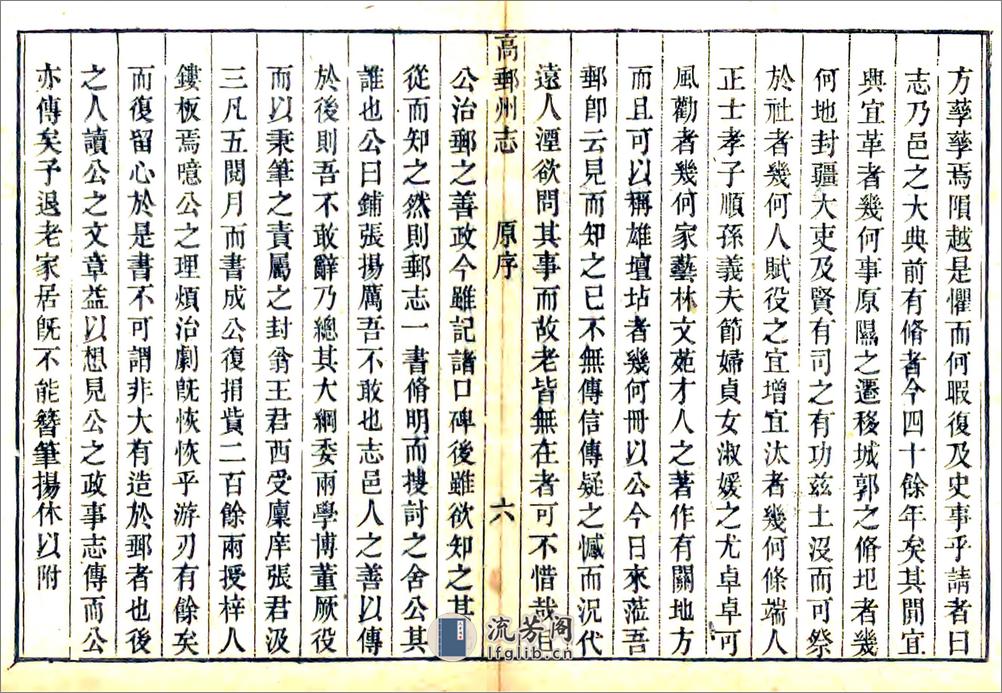 方孳孳焉隕越是懼而何暇復及史事乎請者曰
志乃邑之大典前有脩者今四十餘年矣其間宜
興宜革者幾何事原隰之遷移城郭之脩圯者幾
何地封疆大吏及賢有司之有功茲土沒而可祭
於社者幾何人賦役之宜增宜汰者幾何條端人
正士孝子順孫義夫節婦貞女淑媛之尤卓卓可
風勸者幾何家藝林文苑才人之著作有關地方
而且可以稱雄壇坫者幾何冊以公今日來蒞吾
郵卽云見而知之已不無傳信傳疑之憾而況代
遠人湮欲問其事而故老皆無在者可不惜哉且
高郵州志 原序 六
公治郵之善政今雖記諸口碑後雖欲知之其
從而知之然則郵志一書脩明而摟討之舍公其
誰也公曰鋪張揚厲吾不敢也志邑人之善以傳
於後則吾不敢辭乃總其大綱委兩學博董厥役
而以秉筆之責屬之封翁王君西受廩庠張君汲
三凡五閱月而書成公復捐貲二百餘兩授梓人
鏤板焉噫公之理煩治劇旣恢恢乎游刃有餘矣
而復留心於是書不可謂非大有造於郵者也後
之人讀公之文章益以想見公之政事志傳而公
亦傳矣予退老家居旣不能簪筆揚休以附
流芳阁
lfglib.cn